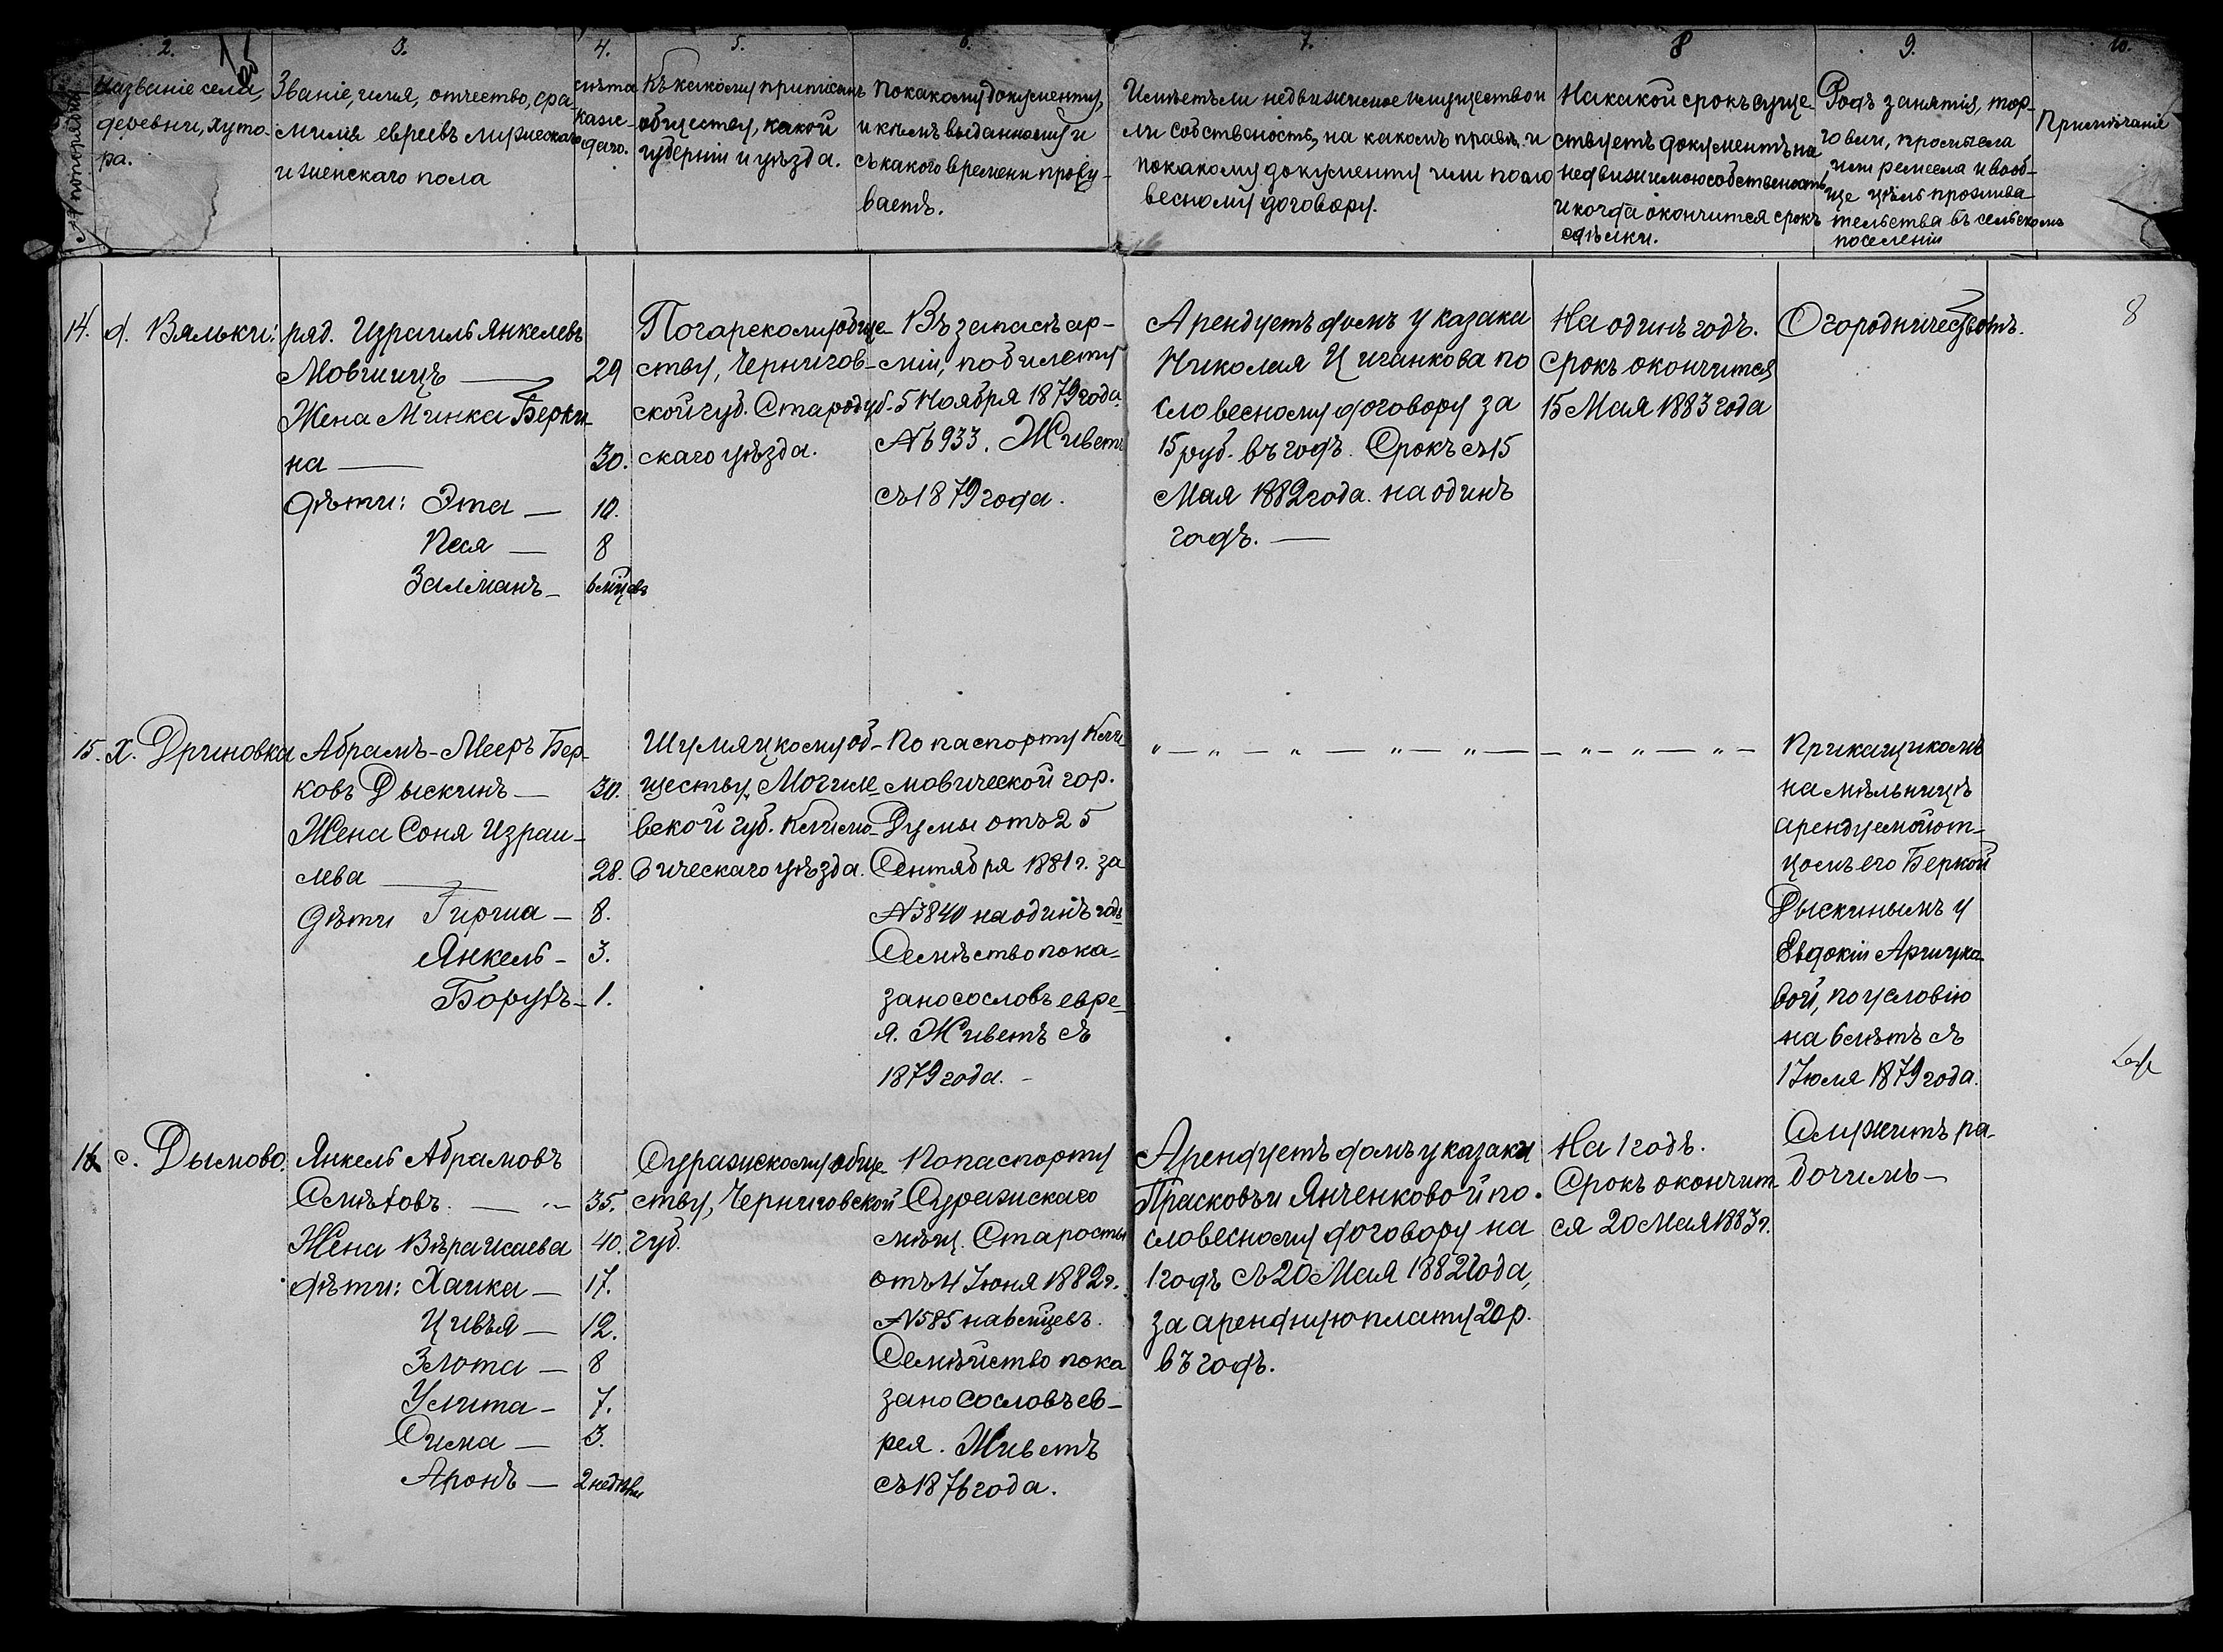 2.
3.
4.
5.
6.
7.
8
9.
10.
№ по порядку
Названіе села,
деревни, хуто-
ра.
Званіе, имя, отчество, фа-
милія евреевъ мужескаго
и женскаго пола
Лѣта
каж-
даго.
Къ какому приписанъ
обществу, какой
губерніи и уѣзда.
По какому документу,
и кѣмъ выданному и
съ какого времени прожи-
ваетъ.
Имѣетъ ли недвижимое имущество и
ли собственость, на какомъ правѣ и
по какому документу или по сло
весному договору.
На какой срокъ суще-
ствуетъ документъ на
недвижимою собственость
и когда окончится срокъ
сдѣлки.
Родъ занятія, тор-
говли, промысла
или ремесла и вооб-
ще цѣль прожива-
тельства въ сельскомъ
поселеніи
Примѣчаніе
14.
д. Вяльки:
ряд. Израиль Янкелевъ
Мовшицъ — 29
Жена Минка Берки-
на — 30.
Дѣти: Эта — 10.
Песя — 8
Залманъ — 6 мцевъ
Погарскому обще-
ству, Чернигов-
ской губ. Стародуб-
скаго уѣзда.
Въ запасѣ ар-
міи, по билету
5 Ноября 1879 года
№ 6933. Живетъ
съ 1879 года.
Арендуетъ домъ у казака
Николая Циганкова по
словесному договору за
15 руб. въ годъ. Срокъ съ 15
Мая 1882 года на одинъ
годъ. —
На одинъ годъ.
Срокъ окончится
15 Мая 1883 года
Огородничествомъ.
8
15.
х. Дриновка
Абрамъ-Мееръ Бер-
ковъ Дыскинъ — 30.
Жена Соня Израи-
лева — 28.
Дѣти Гирша — 8.
Янкель — 3.
Борухъ — 1.
Шумяцкому об-
ществу, Могиле-
вской губ. Климо-
вическаго уѣзда.
По паспорту Кли-
мовической гор.
Думы отъ 25
Сентября 1881 г. за
№ 3840 на одинъ годъ
Семѣство пока-
зано со словъ евре-
я. Живетъ съ
1879 года. —
" — " — " — " — " — — " — " — " —
Прикащикомъ
на мѣльницѣ
арендуемой от-
цомъ его Беркой
Дыскинымъ у
Евдокіи
вой, по условію
на 6 лѣтъ съ
1 Іюля 1879 года.
16
с. Дымово.
Янкель Абрамовъ
Смѣховъ. — " — 35.
Жена Вѣра Исаева 40.
Дѣти: Хаика — 17.
Цивья — 12.
Злота — 8
Улита — 7.
Сима — 3.
Аронъ — 2 недѣли
Суражскому обще
ству, Черниговской
губ.
По паспорту
Суражскаго
мѣщ. Старосты
отъ 4 Іюня 1882 г.
№ 585 на 6 мцевъ.
Семѣйство пока
зано со словъ ев-
рея. Живетъ
съ 1876 года.
Арендуетъ домъ у казаки
Прасковьи Янченковой по
словесному договору на
1 годъ съ 20 Мая 1882 года,
за арендную плату 20 р.
въ годъ.
На 1 годъ.
Срокъ окончит-
ся 20 Мая 1883 г.
Служитъ ра-
бочимъ —